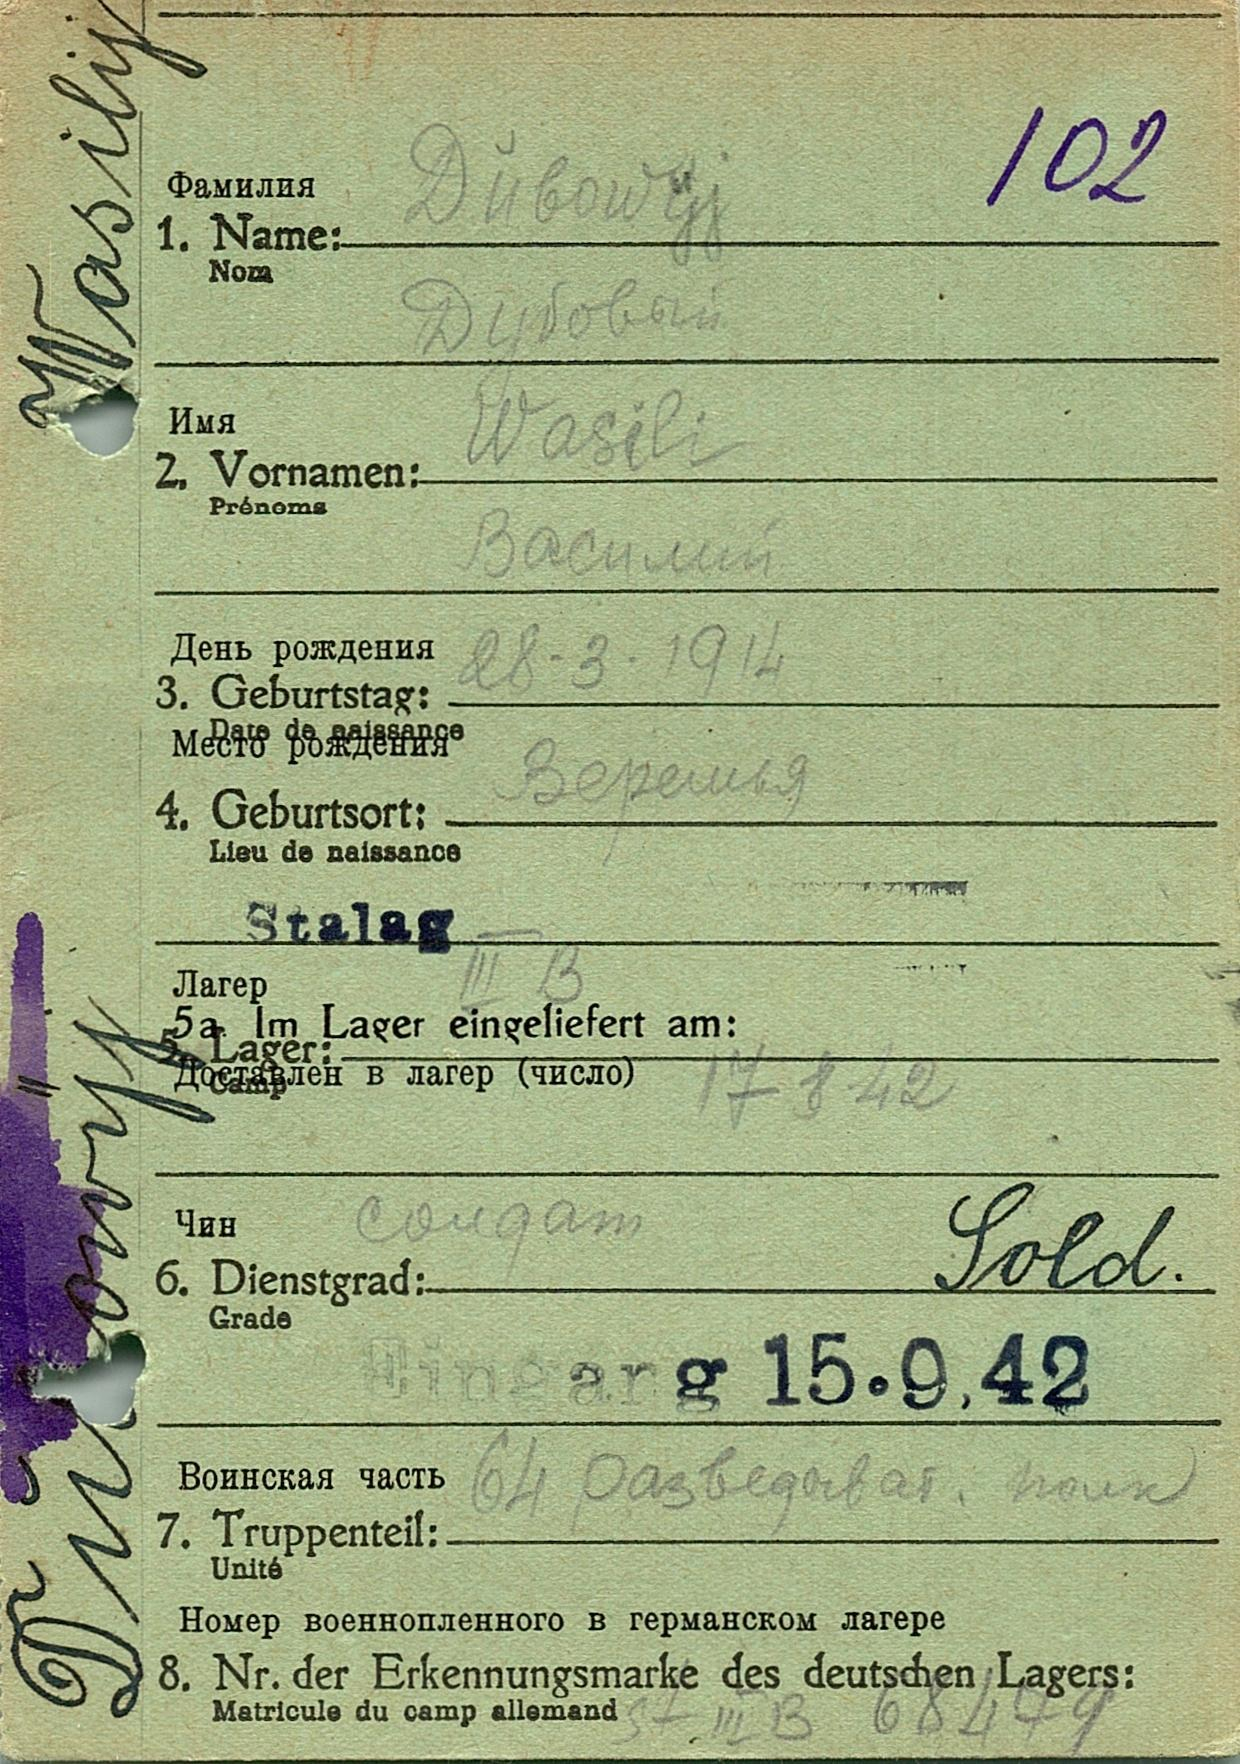 102
Фамилия Dübowÿj
1. Name:
Nom
Дубовый
Имя Wasili
2. Vornamen:
Prénoms
Василий
День рождения 28-3-1914
3. Geburtstag:
Date de naissance
Место рождения Веремья
4. Geburtsort:
Lieu de naissance
Stalag
III B
Лагер
5a. Im Lager eingeliefert am:
5. Lager:
Доставлен в лагер (число) 17 8 42
Camp
Чин солдат Sold.
6. Dienstgrad:
Grade
Eingang 15.9.42
Воинская часть 64 разведыват. полк
7. Truppenteil:
Unité
Номер военнопленного в германском лагере
8. Nr. der Erkennungsmarke des deutschen Lagers:
Matricule du camp allemand St III B 68479
Wasilij